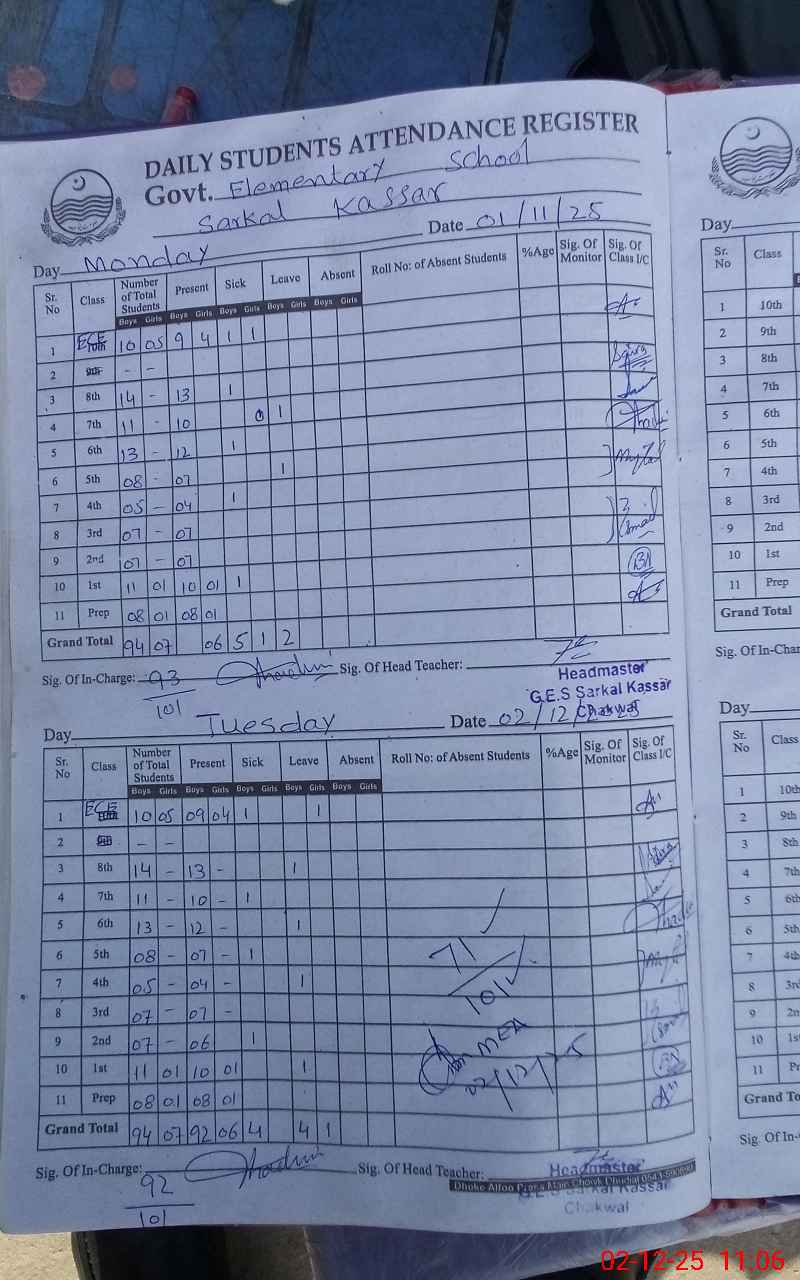 DAILY STUDENTS ATTENDANCE REGISTER
Govt. Elementary School
Sarkal Kassar
Day Monday Date 01/11/25
Sr. No Class Number of Total Students Present Sick Leave Absent Roll No: of Absent Students %Age Sig. Of Monitor Sig. Of Class I/C
Boys Girls Boys Girls Boys Girls Boys Girls Boys Girls
1 ECE 10 05 9 4 1 1
2 9th - -
3 8th 14 - 13 1
4 7th 11 - 10 0 1
5 6th 13 - 12 1
6 5th 08 - 07 1
7 4th 05 - 04 1
8 3rd 07 - 07
9 2nd 07 - 07
10 1st 11 01 10 01 1
11 Prep 08 01 08 01
Grand Total 94 07 06 5 1 2
Sig. Of In-Charge: 93 Sig. Of Head Teacher:
101
Headmaster
G.E.S Sarkal Kassar
Chakwal
Day Tuesday Date 02/12/2025
Sr. No Class Number of Total Students Present Sick Leave Absent Roll No: of Absent Students %Age Sig. Of Monitor Sig. Of Class I/C
Boys Girls Boys Girls Boys Girls Boys Girls Boys Girls
1 ECE 10 05 09 04 1 1
2 - -
3 8th 14 - 13 - 1
4 7th 11 - 10 - 1
5 6th 13 - 12 - 1
6 5th 08 - 07 - 1
7 4th 05 - 04 - 1
8 3rd 07 - 07 -
9 2nd 07 - 06 1
10 1st 11 01 10 01 1
11 Prep 08 01 08 01
Grand Total 94 07 92 06 4 4 1
71
101
MEA
02/12/25
Sig. Of In-Charge: Sig. Of Head Teacher:
92
101
Headmaster
G.E.S Sarkal Kassar
Chakwal
Day
Sr. No Class
1 10th
2 9th
3 8th
4 7th
5 6th
6 5th
7 4th
8 3rd
9 2nd
10 1st
11 Prep
Grand Total
Sig. Of In-Char
Day
Sr. No Class
1 10th
2 9th
3 8th
4 7th
5 6th
6 5th
7 4th
8 3rd
9 2n
10 1s
11 Pr
Grand To
Sig. Of In-
02-12-25 11:06